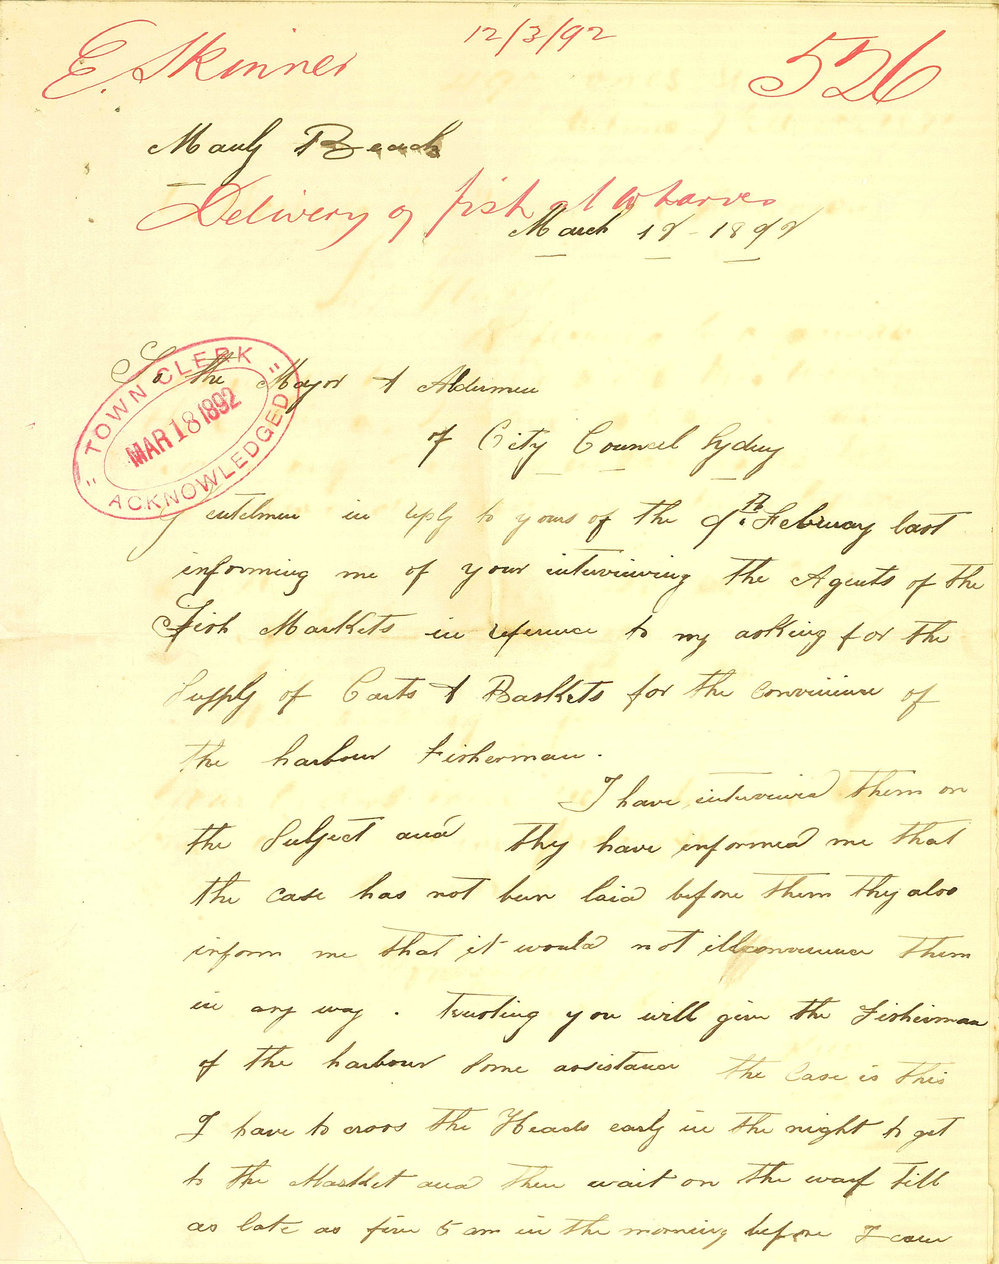 12/3/92
E. Skinner
526
Manly Beach
Delivery of fish at Wharves
March 12 - 1892
To the Mayor & Aldermen
of City Council Sydney
"TOWN CLERK"
MAR 18 1892
ACKNOWLEDGED
Gentelmen in reply to yours of the 9th. February last
informing me of your interviewing the Agents of the
Fish Markets in reference to my asking for the
Supply of Carts & Baskets for the convinience of
the harbour Fisherman.
I have interviewed them on
the Subject and thy have informed me that
the case has not been laid before them thy also
inform me that it would not illconvenience them
in any way. Trusting you will give the Fisherman
of the harbour Some assistance the Case is this
I have to cross the Heads early in the night to get
to the Market and then wait on the warf till
as late as five 5 am in the morning before I can